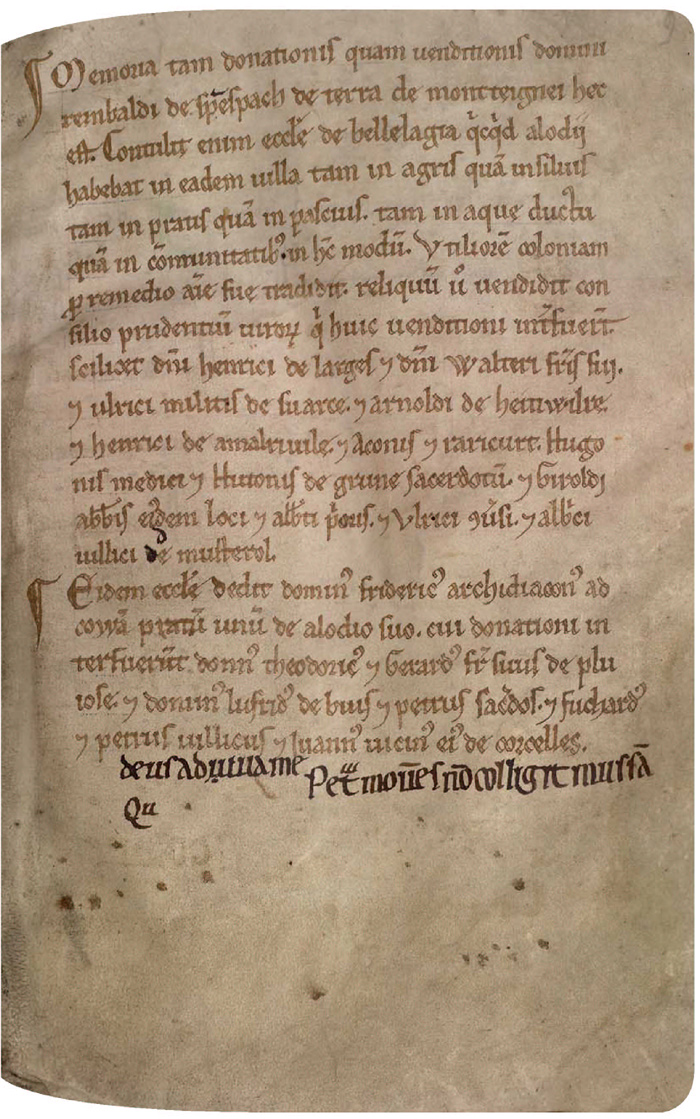 ¶ Memoria tam donationis quam uenditionis domini
rembaldi de sp̄espach de terra de montteignei hec
est. Contulit enim eccl̄e de bellelagia q̇cq̇d alodij
habebat in eadem uilla tam in agris quā in siluis
tam in pratis quā in pascuis. tam in aque ductu
quā in cōmunitatib⁹. in hc̄ modū. Vtiliorē coloniam
ꝑ remedio aīe sue tradidit. reliquū u͛o uendidit con
silio prudentiū uiroꝝ q̇ huic uenditioni int̄fuer̄t.
scilicet dn̄i henrici de larges ⁊ dn̄i Walteri fr̄is sui.
⁊ ulrici militis de suarce. ⁊ arnoldi de heitiwilre.
⁊ henrici de amalriuile. ⁊ Aconis ⁊ raricurt. Hugo
nis medici ⁊ Huionis de grune sacerdotū. ⁊ Giroldi
abb̄is eiꝰdem loci ⁊ alb̄ti p̄oris. ⁊ Vlrici ꝯu̇si. ⁊ alb̄ici
uillici de musterol.
¶ Eidem eccl̄e dedit domin⁹ frideric⁹ archidiacon⁹ ad
cowā pratū unū de alodio suo. cui donationi in
terfuerūt donn⁹ theodoric⁹ ⁊ Gerard⁹ fr̄ suus de plu
iose. ⁊ domin⁹ lufrid⁹ de buis ⁊ petrus sac̄dos. ⁊ fuchard⁹
⁊ petrus uillicus ⁊ Juann⁹ uicin⁹ ei⁹ de corcelles.
deus adiuua me Pet̄ mouēs nō colligit mussā
Qu